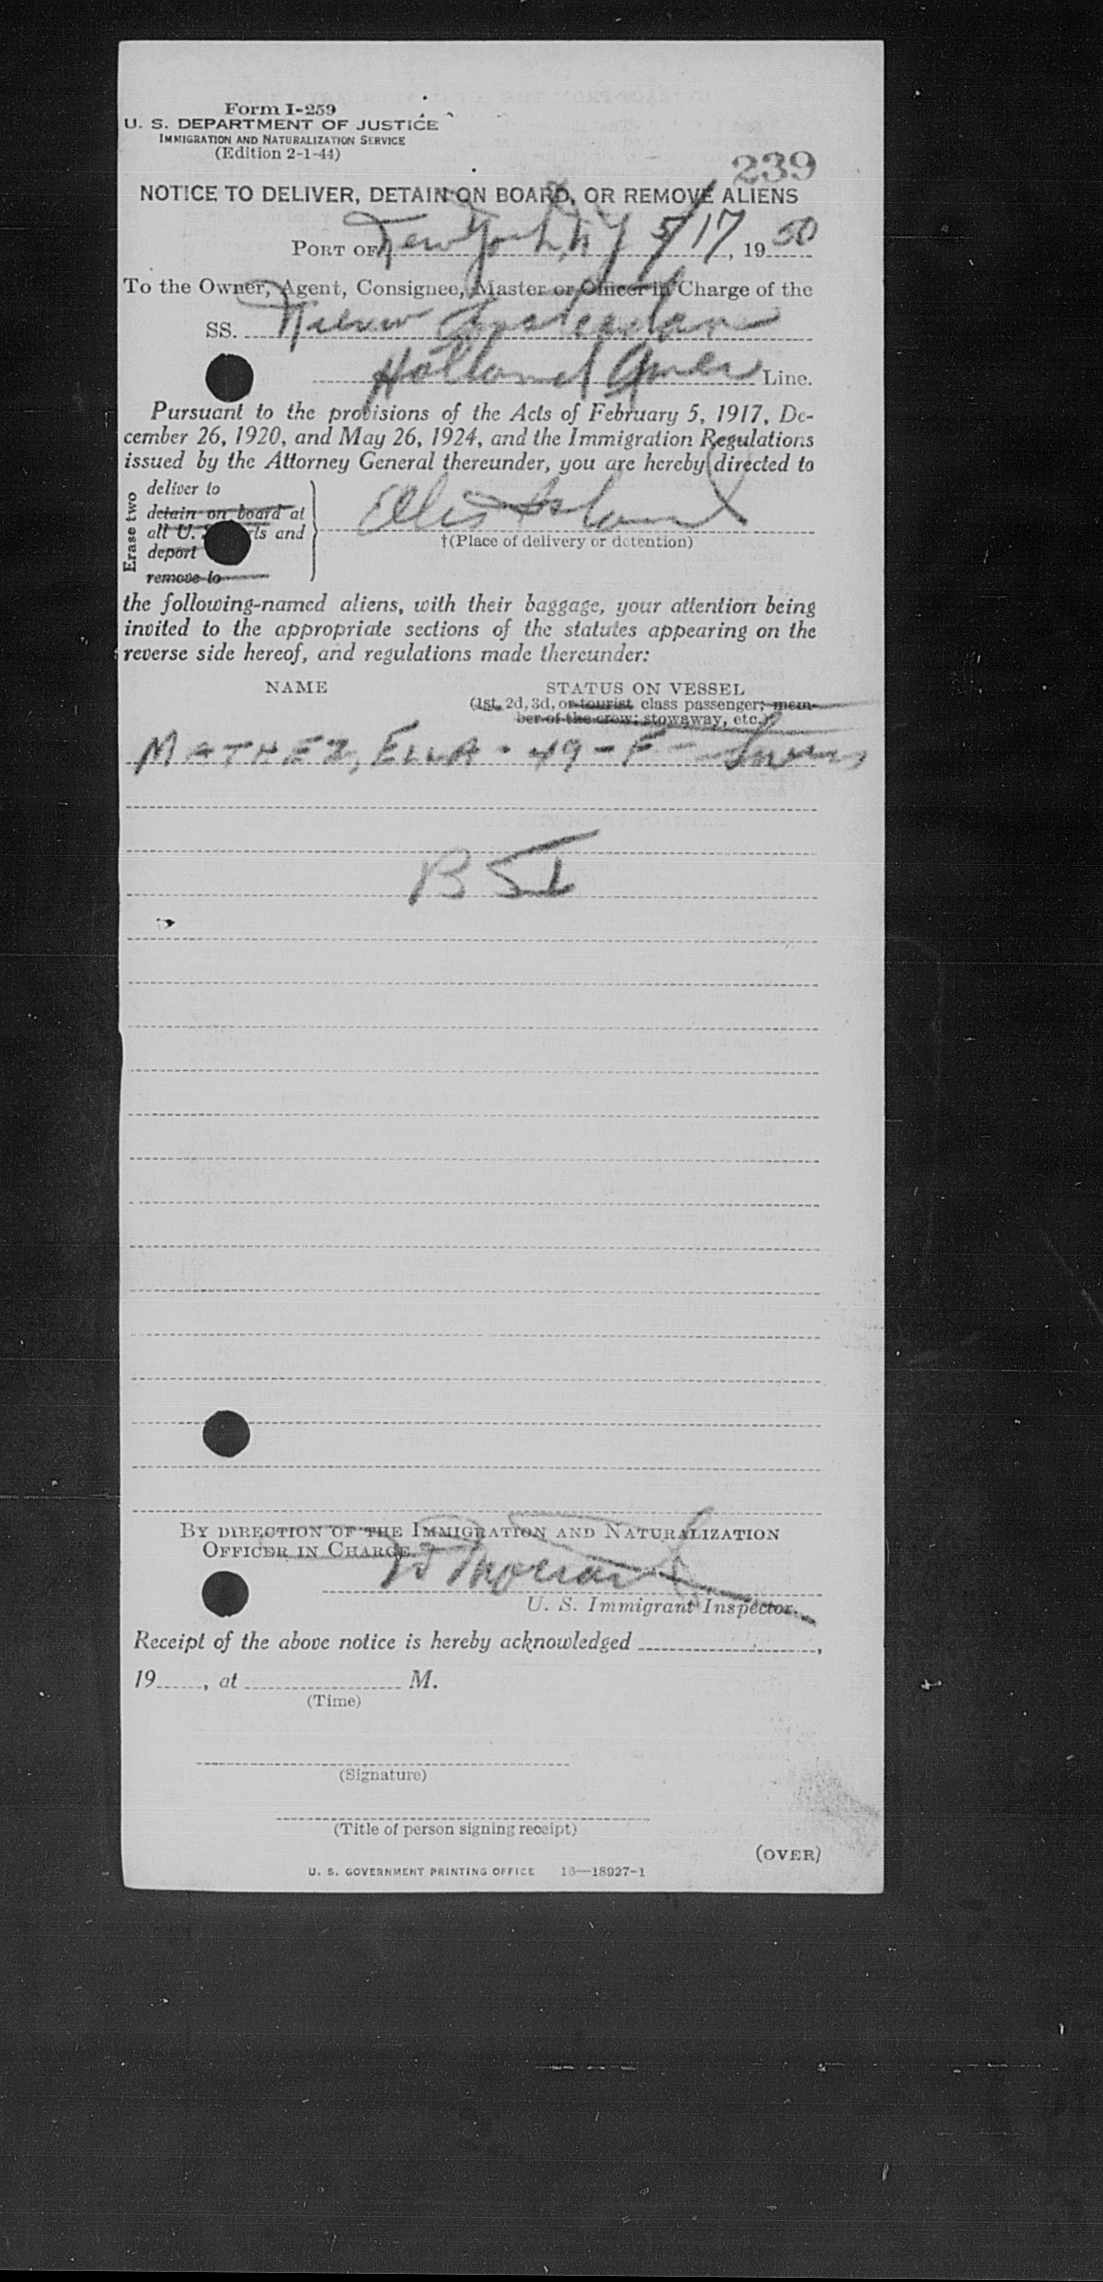 Form I-259
U. S. DEPARTMENT OF JUSTICE
IMMIGRATION AND NATURALIZATION SERVICE
(Edition 2-1-44)
239
NOTICE TO DELIVER, DETAIN ON BOARD, OR REMOVE ALIENS
PORT OF New York, NY 5/17, 1950
To the Owner, Agent, Consignee, Master or Officer in Charge of the
SS. Nieuw Amsterdam
Holland Amer Line.
Pursuant to the provisions of the Acts of February 5, 1917, De-
cember 26, 1920, and May 26, 1924, and the Immigration Regulations
issued by the Attorney General thereunder, you are hereby directed to
Erase two
deliver to
detain on board at
all U. S. ports and
deport
remove to
Ellis Island
†(Place of delivery or detention)
the following-named aliens, with their baggage, your attention being
invited to the appropriate sections of the statutes appearing on the
reverse side hereof, and regulations made thereunder:
NAME STATUS ON VESSEL
(1st, 2d, 3d, or tourist class passenger; mem-
ber of the crew; stowaway, etc.)
MATHEZ, ELLA - 49 - F - Swiss
BSI
BY DIRECTION OF THE IMMIGRATION AND NATURALIZATION
OFFICER IN CHARGE
U. S. Immigrant Inspector.
Receipt of the above notice is hereby acknowledged ,
19 , at M.
(Time)
(Signature)
(Title of person signing receipt)
(OVER)
U. S. GOVERNMENT PRINTING OFFICE 16—18927-1